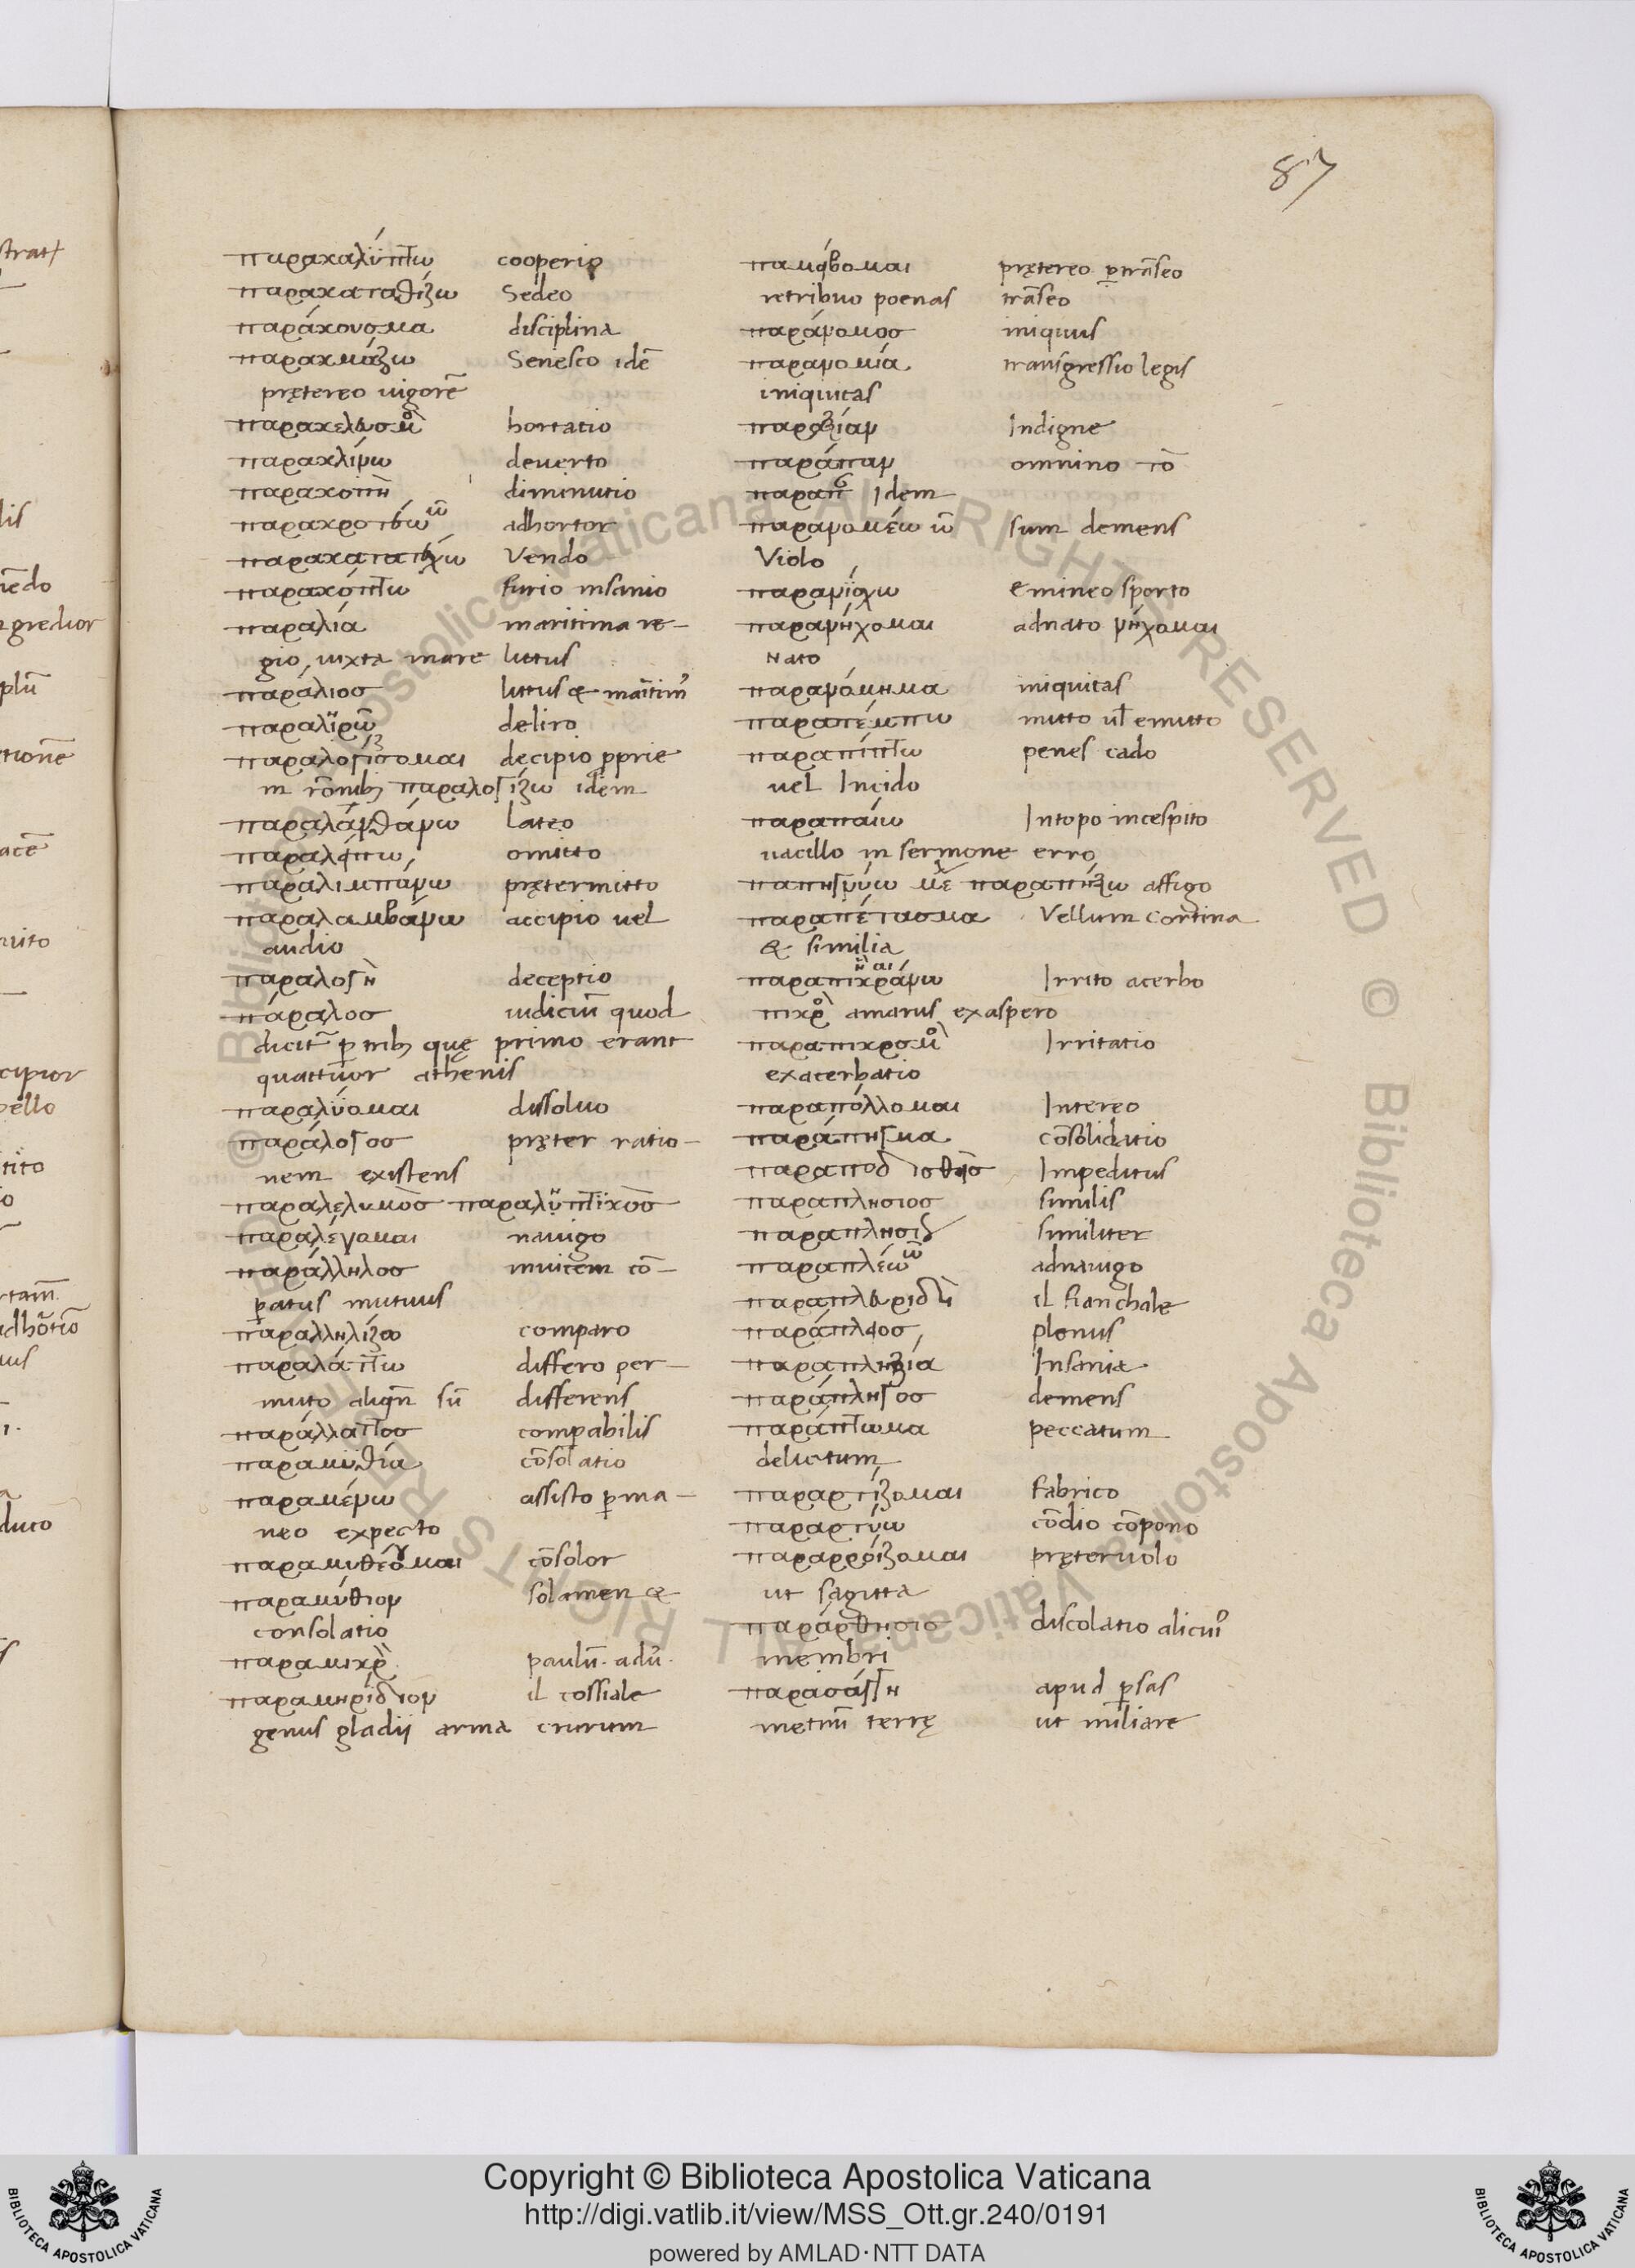 87
παρακαλύπτω cooperio
παρακαταθίζω Sedeo
παράκουσμα disciplina
παρακμάζω Senesco idē
prętereo uigorē
παρακελευσμὸ hortatio
παρακλίνω deuerto
παρακοπὴ diminutio
παρακροτέω ῶ adhortor
Vendo
παρακόπτω furio insanio
παραλία maritima re-
gio, iuxta mare littus
παράλιος littus & maritim9
παραλϊρῶ deliro
παραλογίσομαι decipio pprie
in rōnibꝫ παραλογίζω idem
παραλάνθάνω Lateo
παραλείπω omitto
παραλιμπάνω prętermitto
παραλαμβάνω accipio uel
audio
παραλογὴ deceptio
πάραλοσ iudiciū quod
dicit̄ p tribꝫ quę primo erant
quattuor athenis
παραλύομαι dissoluo
παράλογοσ pręter ratio-
nem existens
παραλελυμὸσ παραλϋπτϊκὸσ
παραλέγομαι nauigo
παράλληλοσ inuicem cō-
patus mutuus
παραλληλίζω comparo
παραλάττω differo per-
muto aliqn̄ sū differens
παράλλαττοσ compabilis
παραμυθία cōsolatio
παραμένω assisto pma-
neo expecto
παραμυθέομαι cōsolor
παραμύθιον solamen &
consolatio
παραμικρὸ paulū. adū.
παραμηρίδιον il cossiale
genus gladij arma crurum
παμείβομαι prętereo ptrāseo
retribuo poenas trāseo
παράνομοσ iniquus
παρανομία transgressio legis
iniquitas
παραξίαν Indigne
παράπαν omnino τὸ
Idem
παρανομέω ῶ sum demens
Violo
παρανίσχω emineo sporto
παρανήχομαι adnato νήχομαι
nato
παρανόμημα iniquitas
παραπέμπω mitto ul emitto
παραπίπτω penes cado
uel Incido
παραπαίω Intopo incespito
uacillo in sermone erro
παπηγνύω μὲ παραπήξω affigo
παραπέτασμα Vellum cortina
& similia
παραπικράνω Irrito acerbo
πικρὸ amarus exaspero
παραπικρσμὸ Irritatio
exacerbatio
παραπόλλομαι Intereo
παράπηγμα cōsolidatio
παραποδισθεὶσ Impeditus
παραπλησιοσ similis
παραπλησίως similiter
παραπλέω ῶ adnauigo
παραπλευριδὶ il fianchale
παράπλεοσ plenus
παραπληξία Insania
παράπληγοσ demens
παράπτωμα peccatum
delictum
παραρτίζομαι fabrico
παραρτύω cōdio cōpono
παραρροίζομαι pręteruolo
ut sagitta
παράρθησισ discolatio alicui9
membri
παρασάγγη apud psas
metrū terrę ut miliare
Copyright © Biblioteca Apostolica Vaticana
http://digi.vatlib.it/view/MSS_Ott.gr.240/0191
powered by AMLAD·NTT DATA
BIBLIOTECA APOSTOLICA VATICANA
BIBLIOTECA APOSTOLICA VATICANA